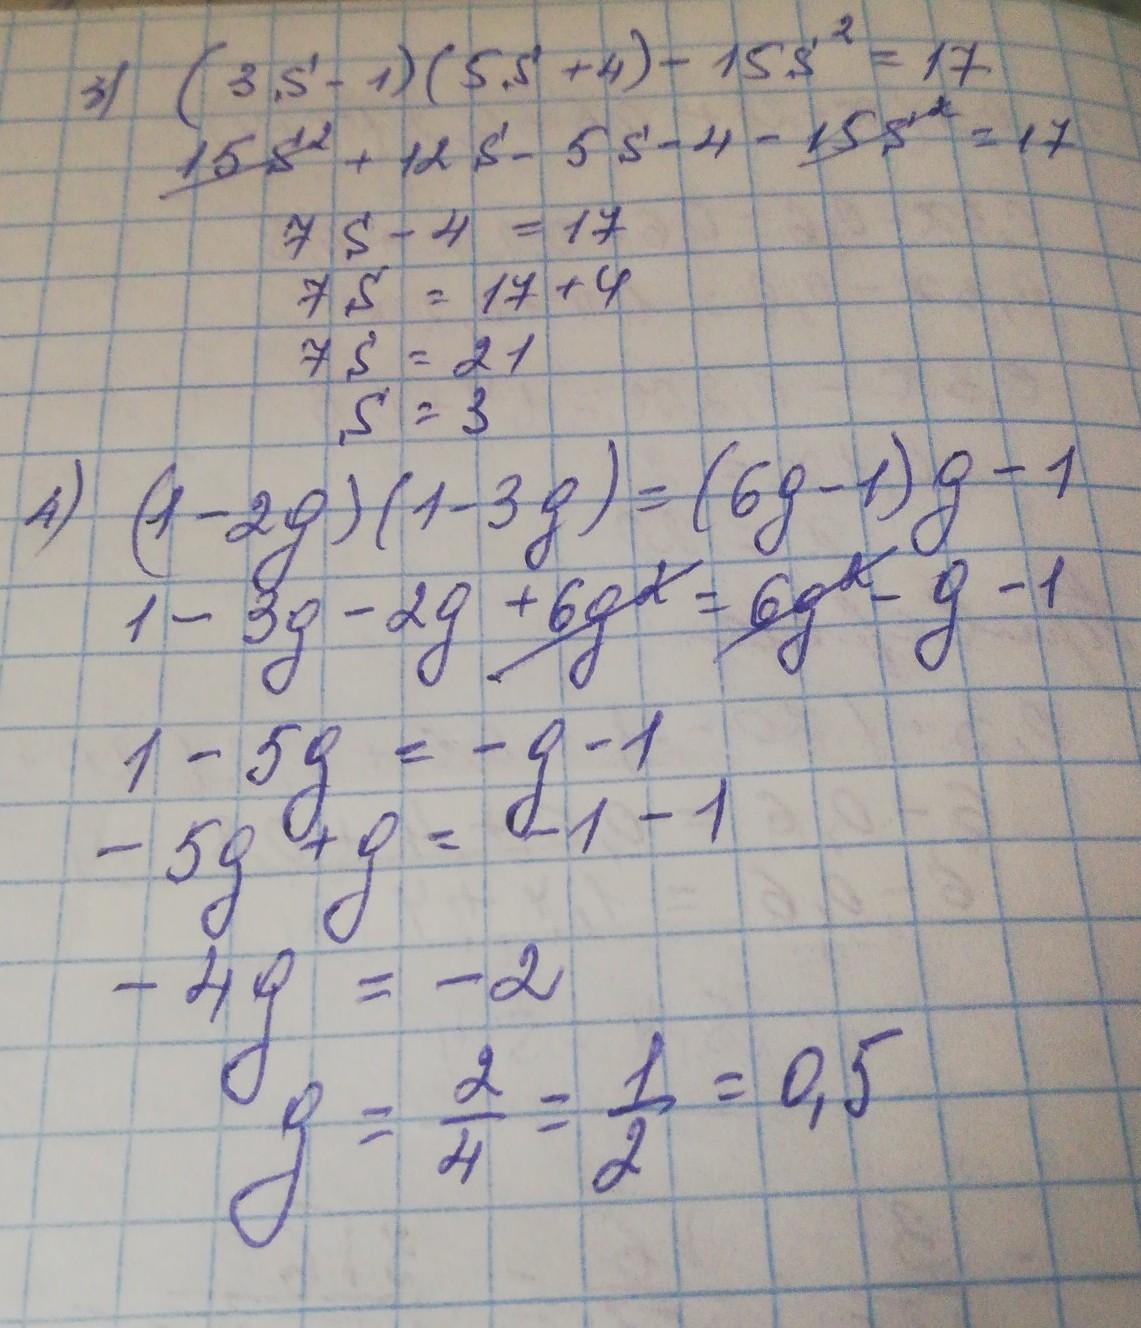 3) (3s-1)(5s+4)-15s²=17
15s²+12s-5s-4-15s²=17
7s-4=17
7s=17+4
7s=21
s=3
4) (1-2g)(1-3g)=(6g-1)g-1
1-3g-2g+6g²=6g²-g-1
1-5g=-g-1
-5g+g=-1-1
-4g=-2
g=2/4=1/2=0,5